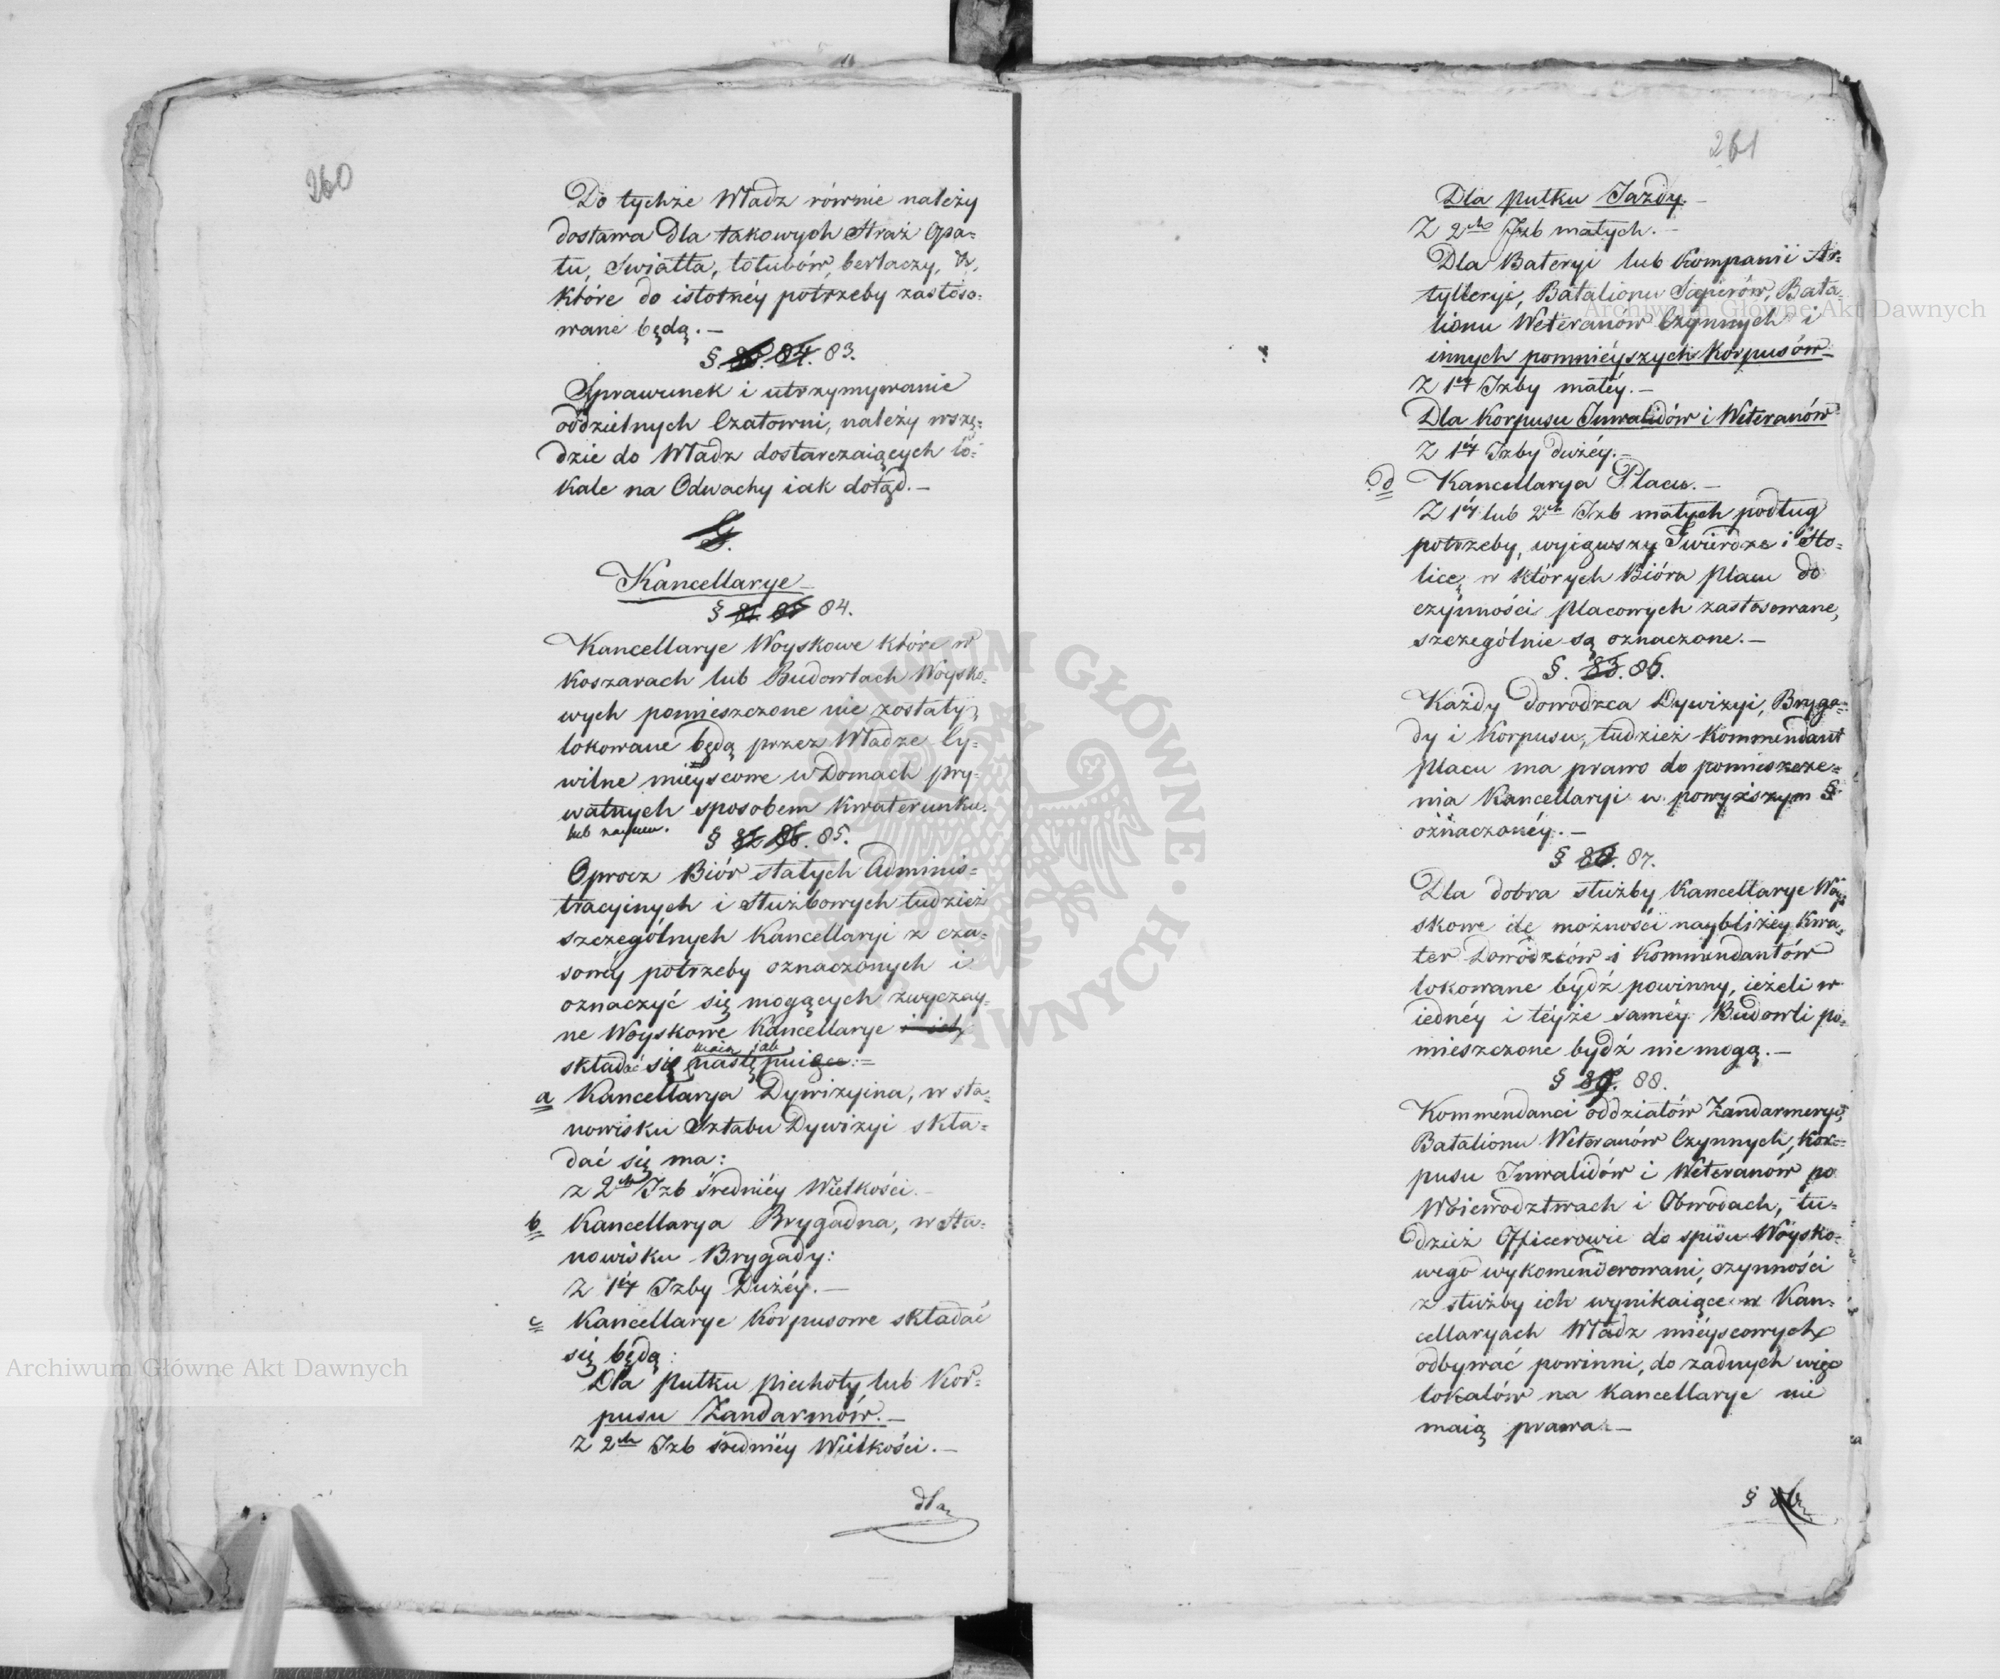 260
Do tychże Władz równie należy
dostawa dla takowych Straż Opa-
łu, Światła, tołubów, berłaczy, &,
które do istotnéy potrzeby zastoso-
wane będą.—
§. 83.
Sprawunek i utrzymywanie
oddzielnych Czatowni, należy wszę-
dzie do Władz dostarczaiących lo-
kale na Odwachy iak dotąd.—
G.
Kancellarye
§ 84.
Kancellarye Woyskowe które w
Koszarach lub Budowlach Woysko-
wych pomieszczone nie zostały,
lokowane będą przez Władze Cy-
wilne mieyscowe w Domach pry-
watnych sposobem kwaterunku.
lub naymu.
§ 85.
Oprocz Biór stałych Adminis-
tracyinych i służbowych tudzież
szczególnych Kancellaryi z cza-
sowéy potrzeby oznaczonych i
oznaczyć się mogących zwyczay-
ne Woyskowe Kancellarye
maią jak
składać się następuie:=
a Kancellarya Dywizyina, w sta-
nowisku Sztabu Dywizyi skła-
dać się ma:
z 2ch Izb średniéy Wielkości.—
b Kancellarya Brygadna, w Sta-
nowisku Brygady:
Z 1éy Izby Dużéy.—
c Kancellarye Korpusowe składać
się będą:
Dla pułku piechoty lub Kor-
pusu Żandarmów.—
Z 2ch Izb średniéy Wielkości.—
dla
261
Dla pułku Jazdy.—
Z 2ch Izb małych.—
Dla Bateryi lub Kompanii Ar-
tylleryi, Batalionu Saperów, Bata-
lionu Weteranow Czynnych i
innych pomniéyszych Korpusów—
Z 1éy Izby małéy.—
Dla Korpusu Inwalidów i Weteranów
Z 1éy Izby dużéy.—
d Kancellarya Placu.—
Z 1éy lub 2ch Izb małych podług
potrzeby, wyiąwszy Twierdze i Sto-
licę, w których Bióra Placu do
czynności placowych zastosowane,
szczególnie są oznaczone.—
§. 85. 86.
Każdy Dowodzca Dywizyi, Bryga-
dy i Korpusu, tudzież Kommendant
Placu ma prawo do pomieszcze-
nia Kancellaryi w powyższym §
oznaczonéy.—
§ 87.
Dla dobra służby Kancellarye Woy-
skowe ile możności naybliżéy Kwa-
ter Dowódzców i Kommendantów
lokowane bydź powinny, ieżeli w
iednéy i téyże saméy Budowli po-
mieszczone bydź nie mogą.—
§ 88.
Kommendanci oddziałów Żandarmeryi,
Batalionu Weteranów Czynnych, Kor-
pusu Inwalidów i Weteranów po
Woiewodztwach i Obwodach, tu-
dzież Officerowie do spisu Woysko-
wego wykomenderowani, czynności
z służby ich wynikaiące w Kan-
cellaryach Władz miéyscowych
odbywać powinni, do żadnych więc
lokalów na Kancellarye nie
maią prawa.—
§
Archiwum Główne Akt Dawnych
Archiwum Główne Akt Dawnych
ARCHIWUM GŁÓWNE AKT DAWNYCH